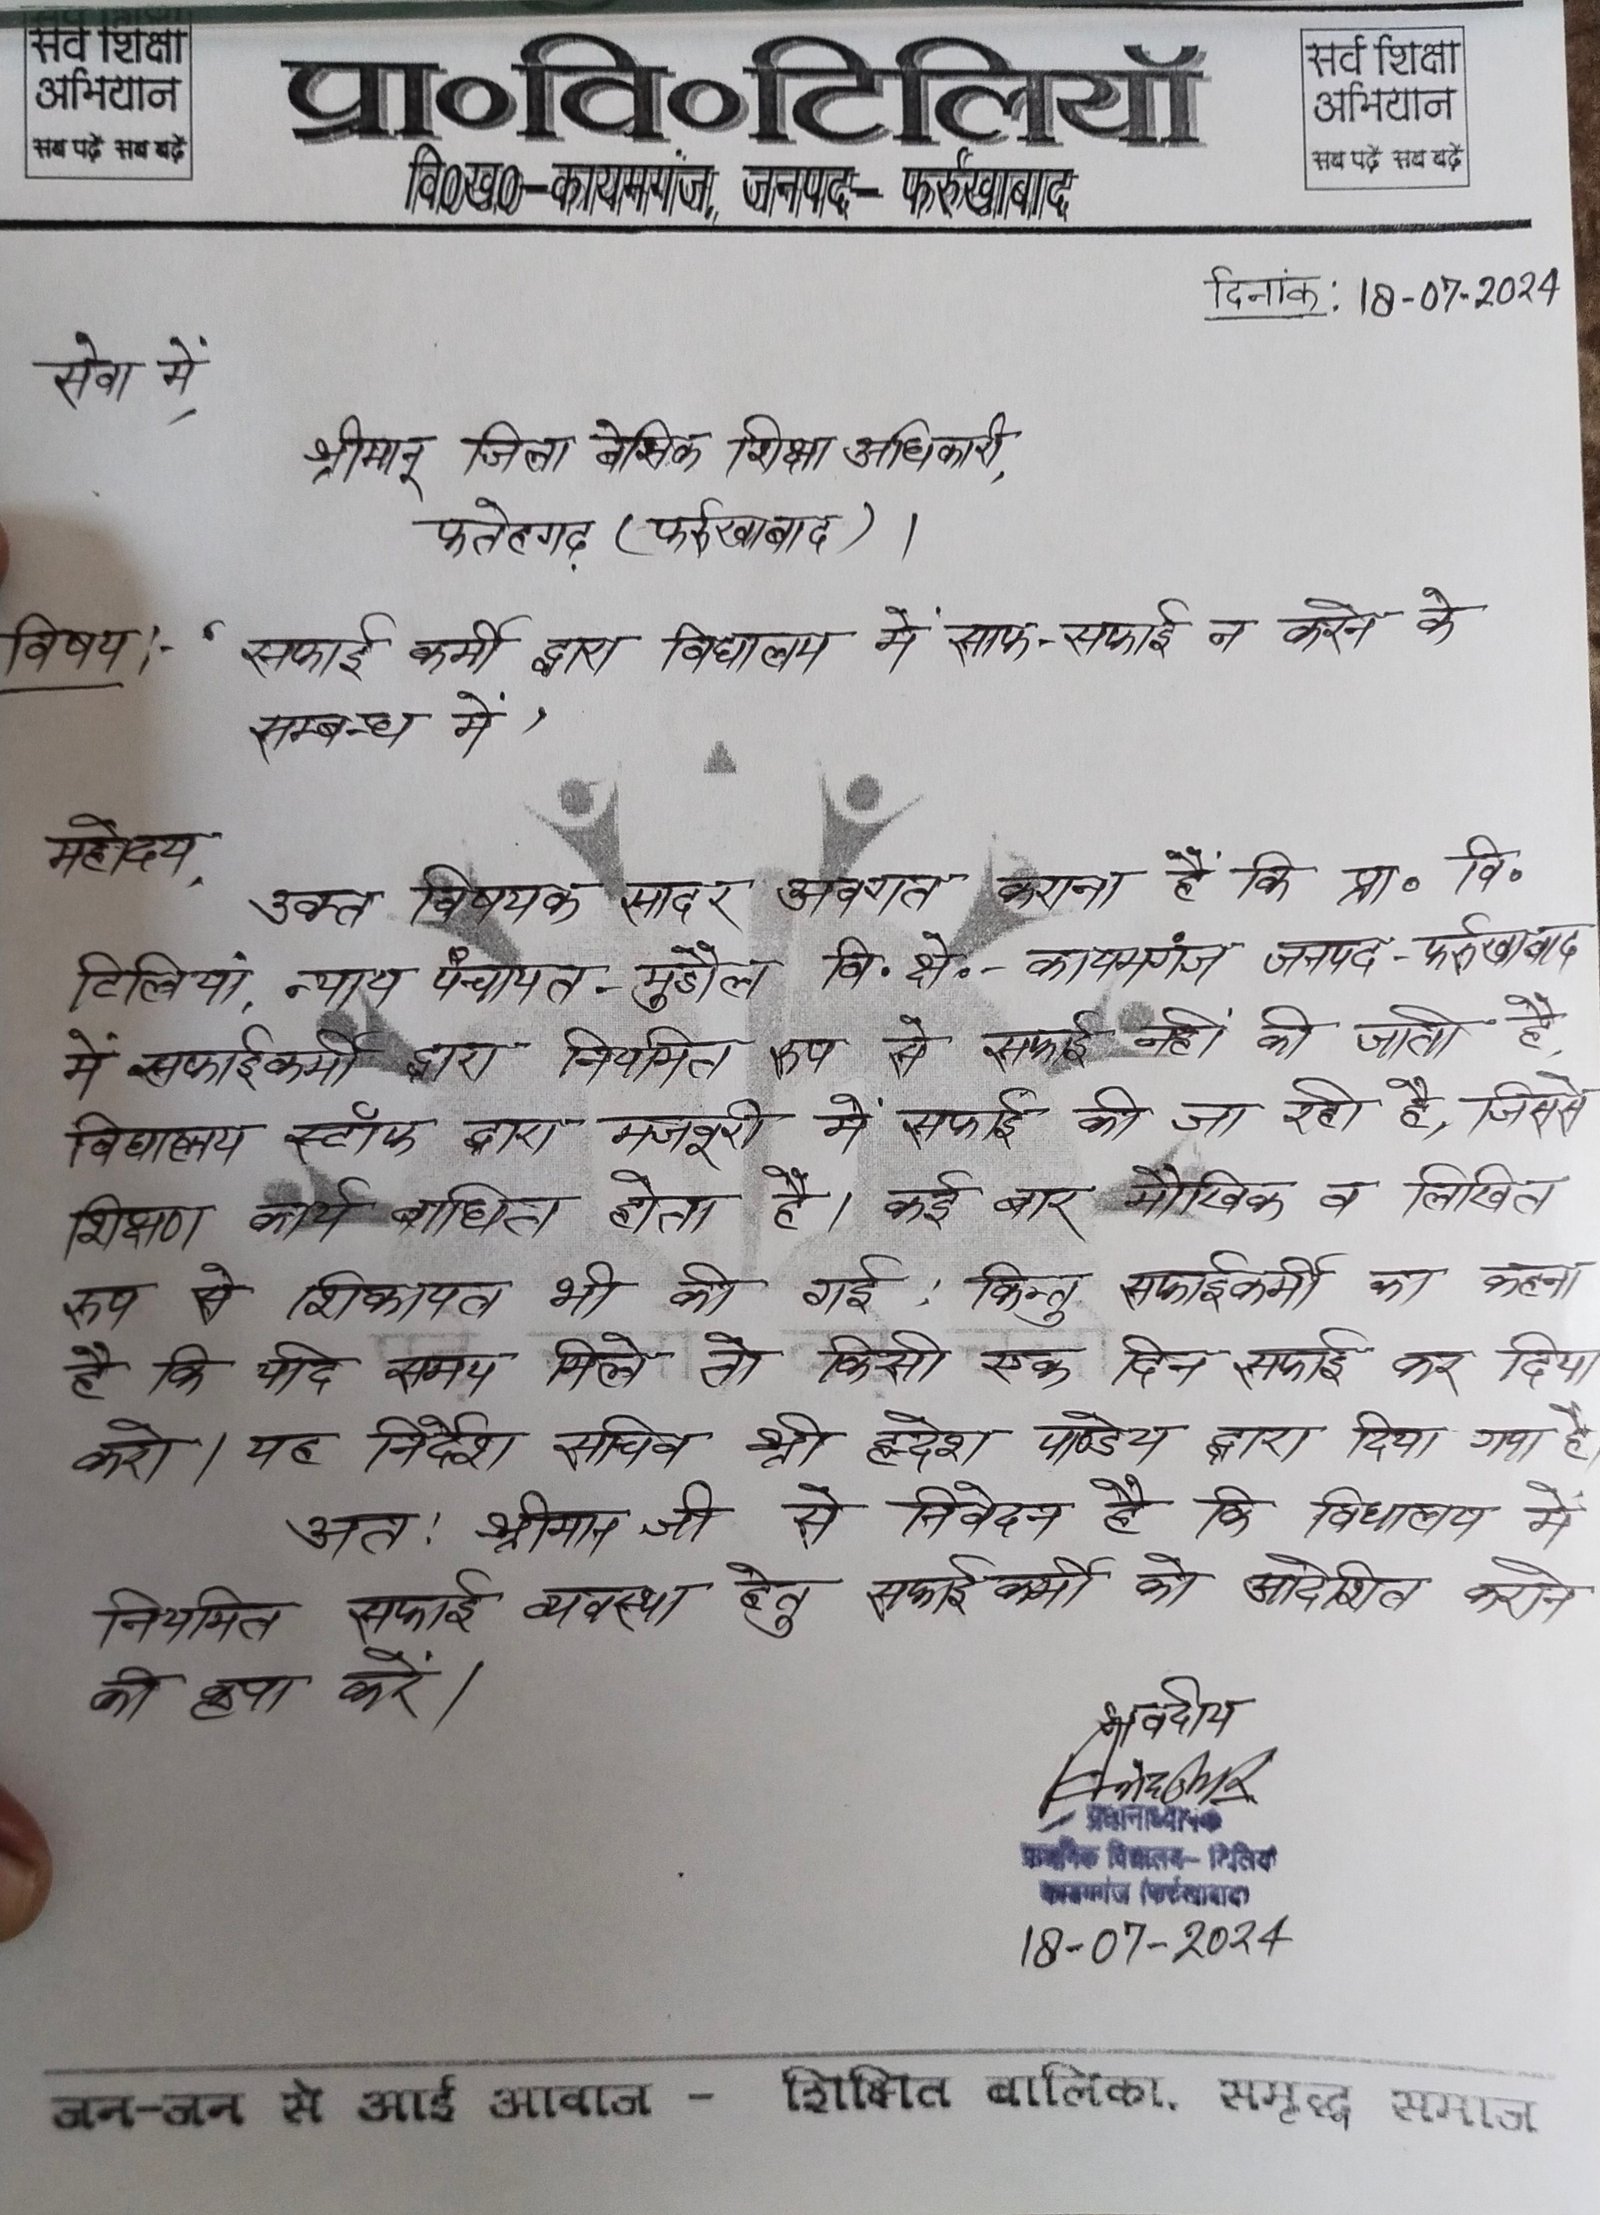 सर्व शिक्षा
अभियान
सब पढ़ें सब बढ़ें
प्रा०वि०टिलियॉ
वि0ख0-कायमगंज, जनपद- फर्रुखाबाद
सर्व शिक्षा
अभियान
सब पढ़ें सब बढ़ें
दिनांक: 18-07-2024
सेवा में,
श्रीमान् जिला बेसिक शिक्षा अधिकारी,
फतेहगढ़ (फर्रुखाबाद)।
विषय:- ‘ सफाई कर्मी द्वारा विद्यालय में साफ-सफाई न करने के
सम्बन्ध में ’
महोदय,
उक्त विषयक सादर अवगत कराना है कि प्रा० वि०
टिलियां, न्याय पंचायत-मुडौल वि.क्षे.- कायमगंज जनपद-फर्रुखाबाद
में सफाईकर्मी द्वारा नियमित रूप से सफाई नहीं की जाती है,
विद्यालय स्टॉफ द्वारा मजबूरी में सफाई की जा रही है, जिससे
शिक्षण कार्य बाधित होता है। कई बार मौखिक व लिखित
रूप से शिकायत भी की गई; किन्तु सफाईकर्मी का कहना
है कि यदि समय मिले तो किसी एक दिन सफाई कर दिया
करो। यह निर्देश सचिव श्री ह्रदेश पाण्डेय द्वारा दिया गया है।
अत: श्रीमान जी से निवेदन है कि विद्यालय में
नियमित सफाई व्यवस्था हेतु सफाईकर्मी को आदेशित कराने
की कृपा करें।
भवदीय
प्रधानाध्यापक
प्राथमिक विद्यालय- टिलियॉ
कायमगंज (फर्रुखाबाद)
18-07-2024
जन-जन से आई आवाज - शिक्षित बालिका, समृद्ध समाज